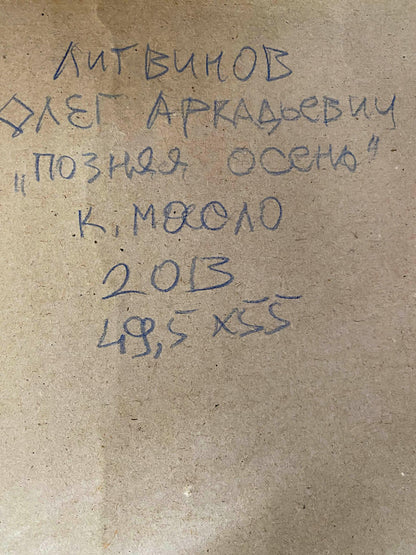 ЛИТВИНОВ
ОЛЕГ АРКАДЬЕВИЧ
„ПОЗНЯЯ ОСЕНЬ"
К, МАСЛО
2013
49,5 х 55